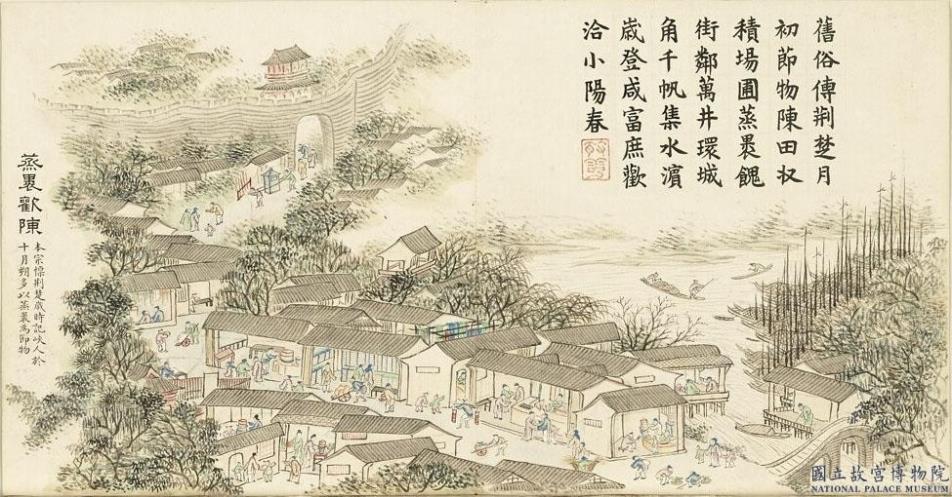 舊俗傳荆楚月
初節物陳田収
積場圃蒸裹餽
街鄰萬井環城
角千帆集水濱
歲登咸富庶歡
洽小陽春
蒸裹歡陳
本宗懍荆楚歲時記峽人於
十月朔多以蒸裹為節物
國立故宮博物院
NATIONAL PALACE MUSEUM